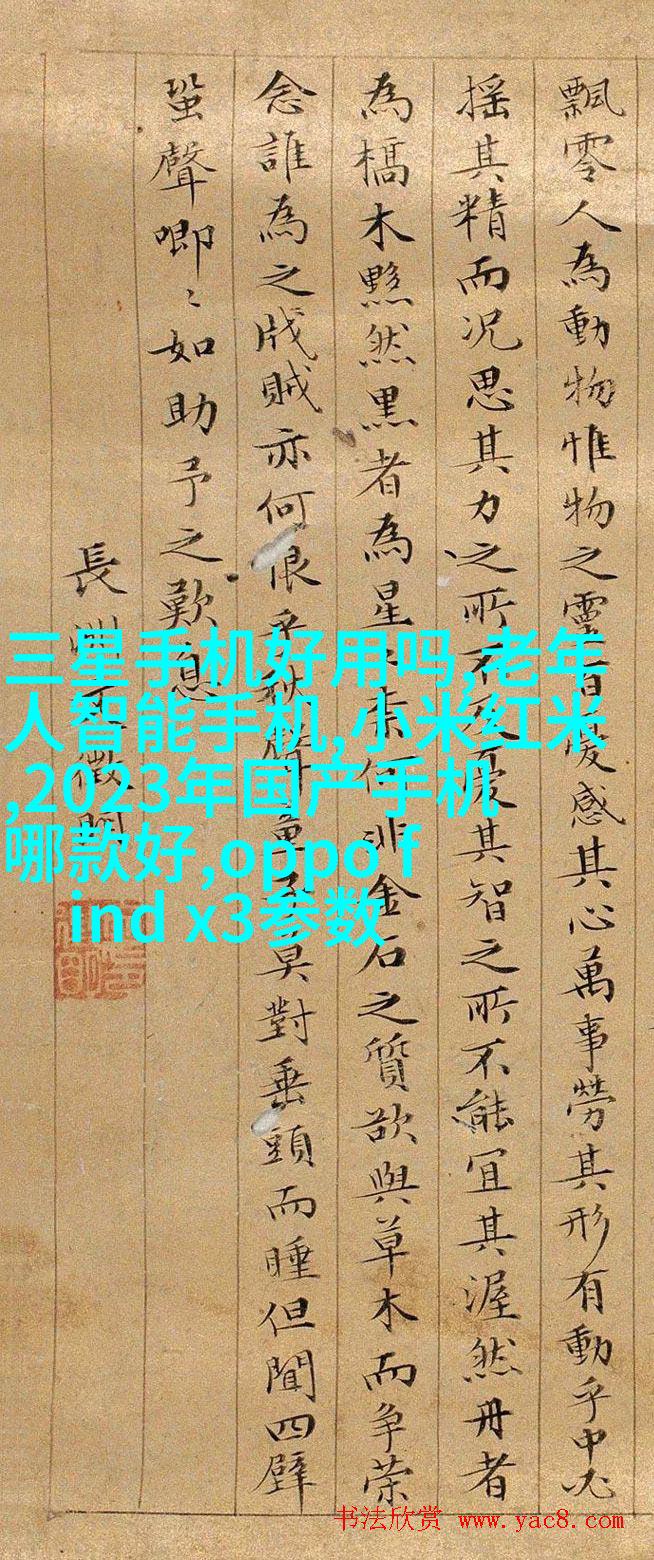 飄零人為動物惟物之靈百憂感其心萬事勞其形有動乎中必
搖其精而況思其力之所不及憂其智之所不能宜其渥然丹者
為槁木黟然黑者為星星奈何非金石之質欲與草木而爭榮
念誰為之戕賊亦何恨乎秋聲童子莫對垂頭而睡但聞四壁
蛩聲唧〻如助予之歎息
長洲文徵明
三星手机好用吗,老年
人智能手机,小米红米
,2023年国产手机
哪款好,oppo f
ind x3参数
书法欣赏 www.yac8.com